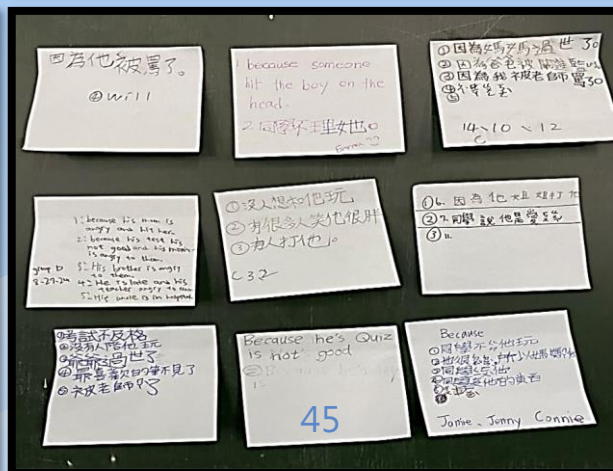 因為他被罵了。
④will
1. because someone
hit the boy on the
head.
2. 同學不理她。
①因為媽媽過世了。
②因為爸爸被關進監
③因為我被老師罵。
14、10、12
1: because his mom is
angy and hit her.
2: because his test his
not good and his mom
is angry to them.
3: His brother is angry
to them.
4: He is late and his
teacher angry to
5: His uncle is in hospital
group D
8-27-24
①沒人想和他玩
②有很多人笑他很胖
③有人打他。
C 32
①6. 因為他姐姐打他
②7. 同學說他是愛哭
③11.
①考試不及格
②沒有人陪他玩
③爺爺過世了
④最喜歡的筆不見了
⑤被老師罵了
Because he's Quiz
is not good
45
Because
①同學不給他玩
③同學
④同學拿他的東西
Jamie、Jonny Connie